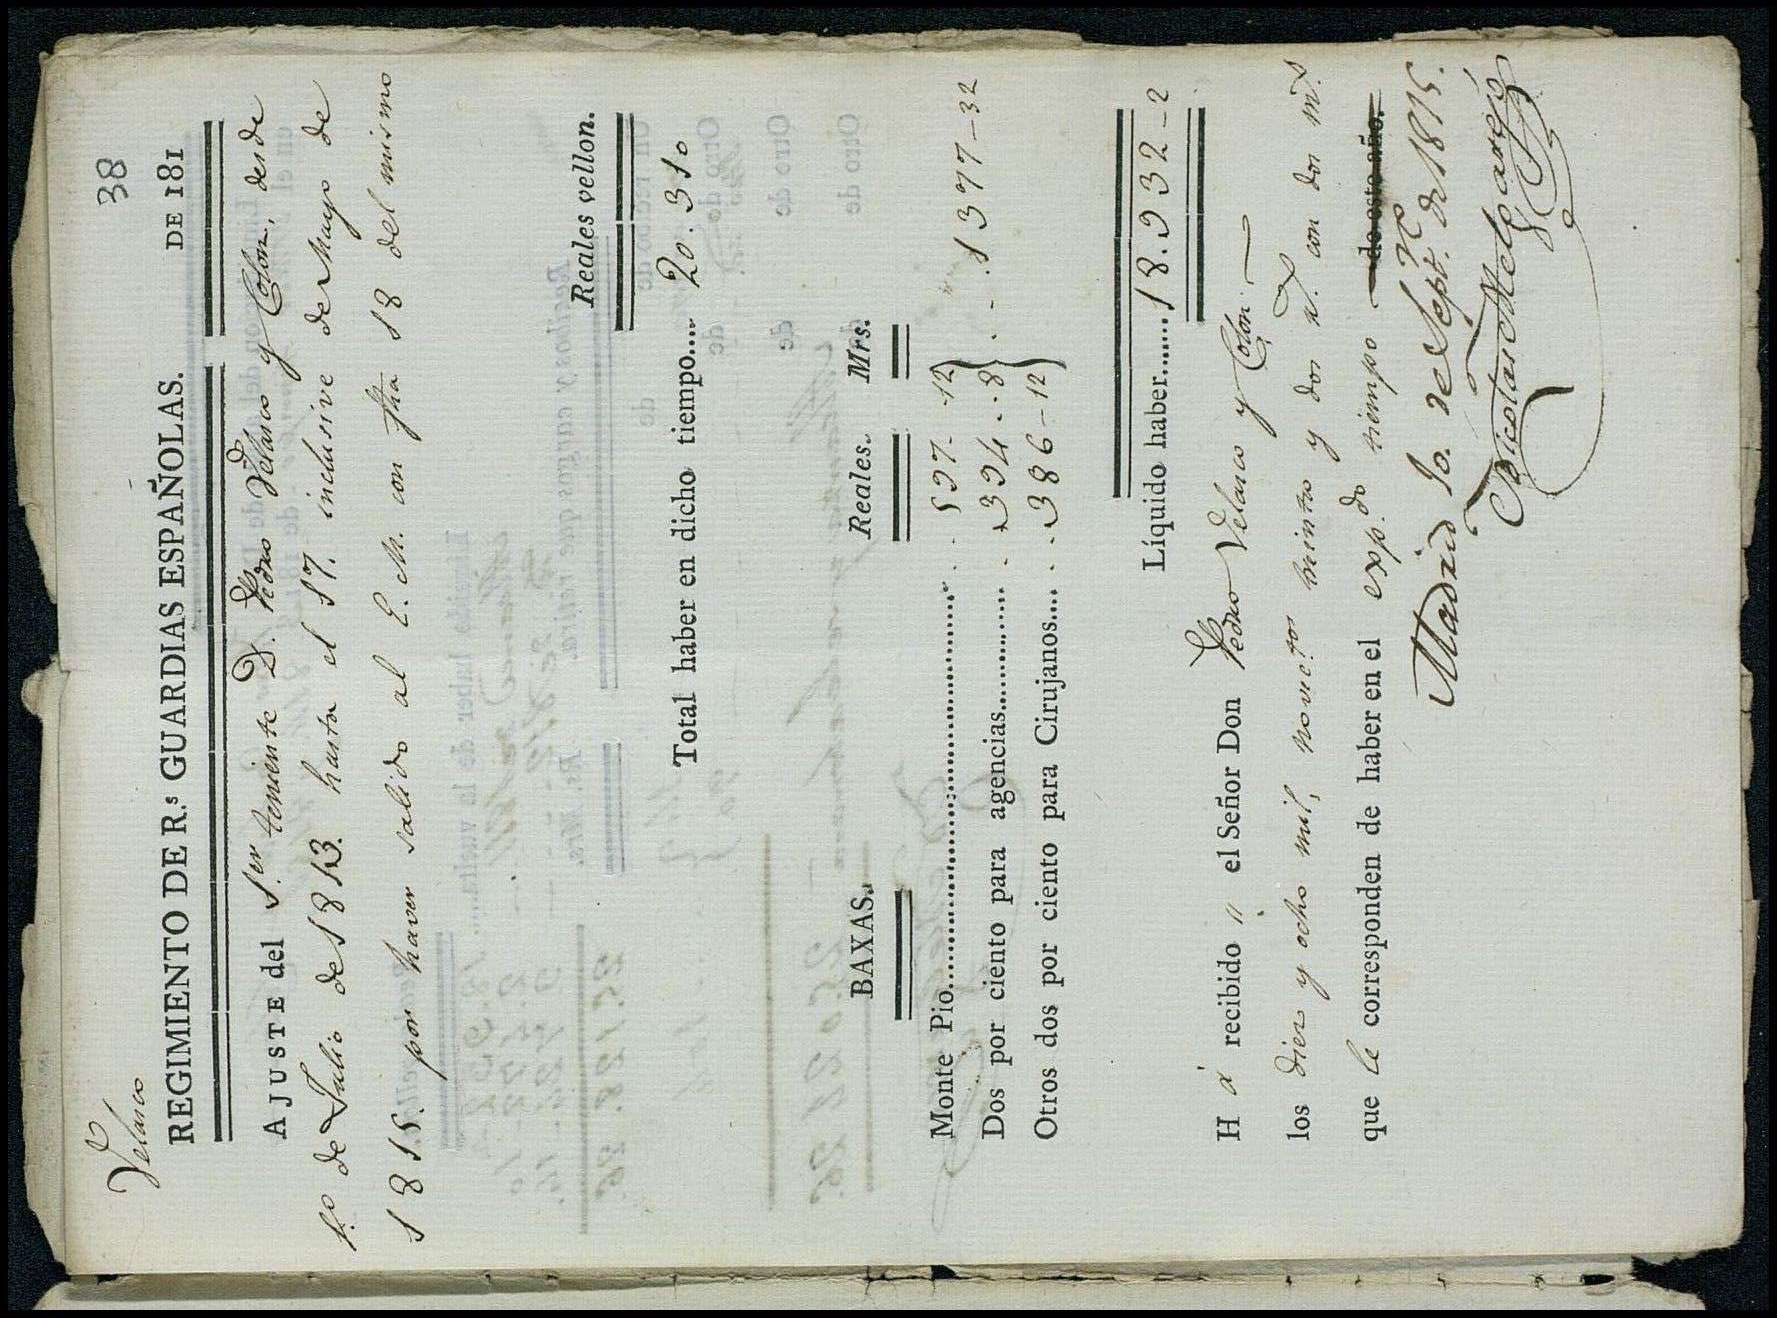 38
Velasco
REGIMIENTO DE R.ˢ GUARDIAS ESPAÑOLAS. DE 181
AJUSTE del 1.er teniente D. Pedro Velasco y Colon, desde
1.º de Julio de 1813. hasta el 17. inclusive de Mayo de
1815. por haver salido al E. M. con fha 18 del mismo
Reales vellon.
Total haber en dicho tiempo.... 20.310
BAXAS. Reales. Mrs.
Monte Pio.......... 597-12
Dos por ciento para agencias.......... 394-8 } 1377-32
Otros dos por ciento para Cirujanos.... 386-12
Líquido haber....... 18.932-2
Há recibido el Señor Don Pedro Velasco y Colon
los diez y ocho mil, novec.tos treinta y dos r.s con dos m.s
que le corresponden de haber en el exp.do tiempo de este año.
Madrid 10. de Sept.re de 1815.
Nicolas Melgarejo